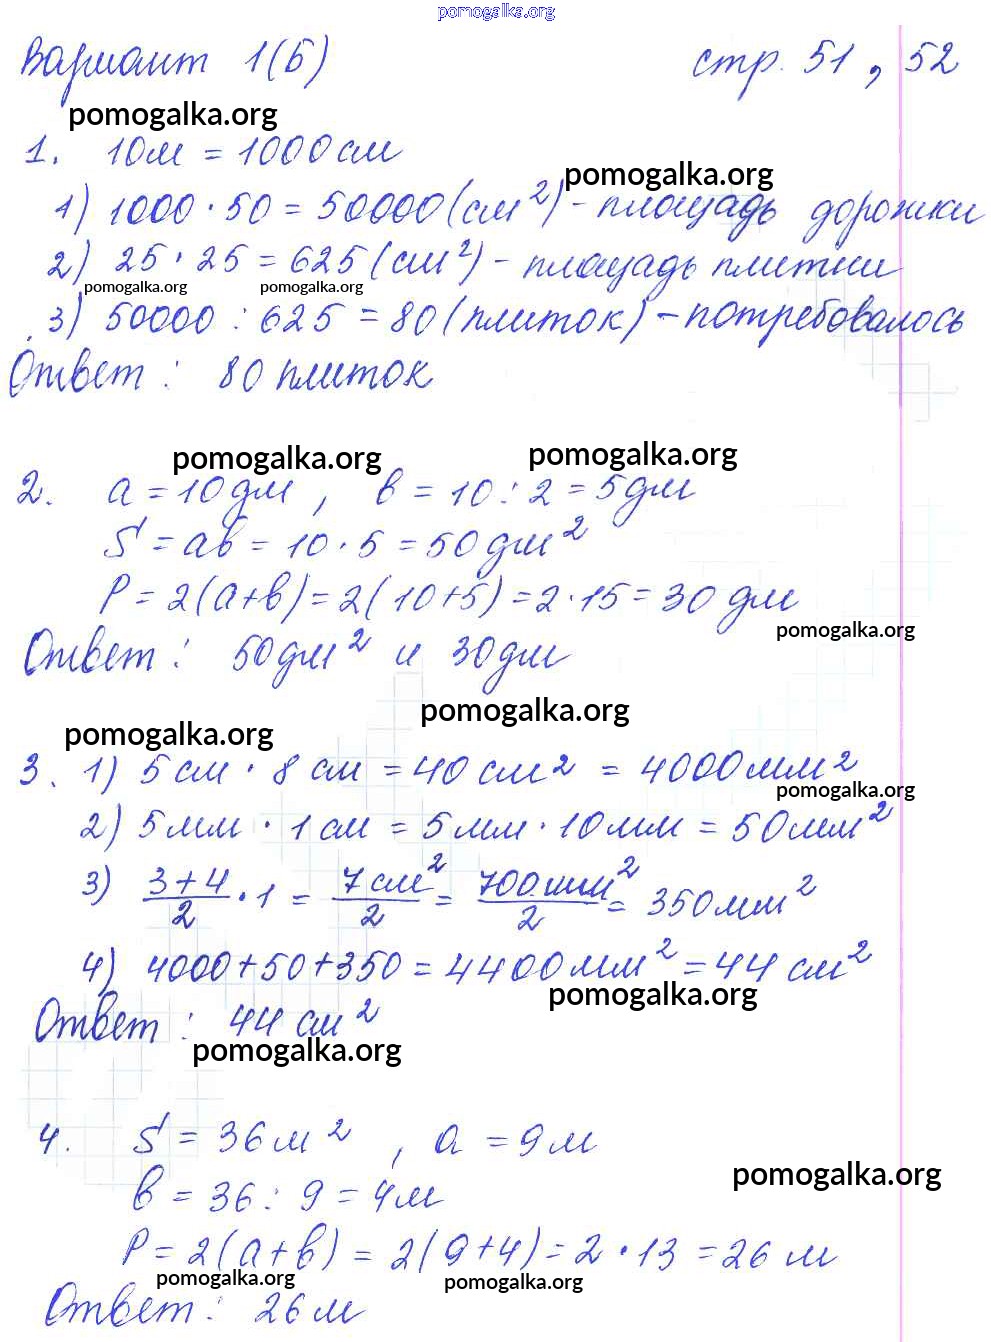 pomogalka.org
Вариант 1(Б) стр. 51, 52
pomogalka.org
1. 10м = 1000см
pomogalka.org
1) 1000 · 50 = 50000 (см²) - площадь дорожки
2) 25 · 25 = 625 (см²) - площадь плитки
pomogalka.org pomogalka.org
3) 50000 : 625 = 80 (плиток) - потребовалось
Ответ: 80 плиток
pomogalka.org pomogalka.org
2. a = 10дм, b = 10 : 2 = 5дм
S = ab = 10 · 5 = 50 дм²
P = 2(a+b) = 2(10+5) = 2·15 = 30 дм
pomogalka.org
Ответ: 50дм² и 30дм
pomogalka.org
pomogalka.org
3. 1) 5 см · 8 см = 40 см² = 4000 мм²
pomogalka.org
2) 5 мм · 1 см = 5 мм · 10 мм = 50 мм²
3) (3+4)/2 · 1 = 7 см²/2 = 700 мм²/2 = 350 мм²
4) 4000+50+350 = 4400 мм² = 44 см²
pomogalka.org
Ответ: 44 см²
pomogalka.org
4. S = 36 м², a = 9 м
pomogalka.org
b = 36 : 9 = 4м
P = 2(a+b) = 2(9+4) = 2 · 13 = 26 м
pomogalka.org pomogalka.org
Ответ: 26 м